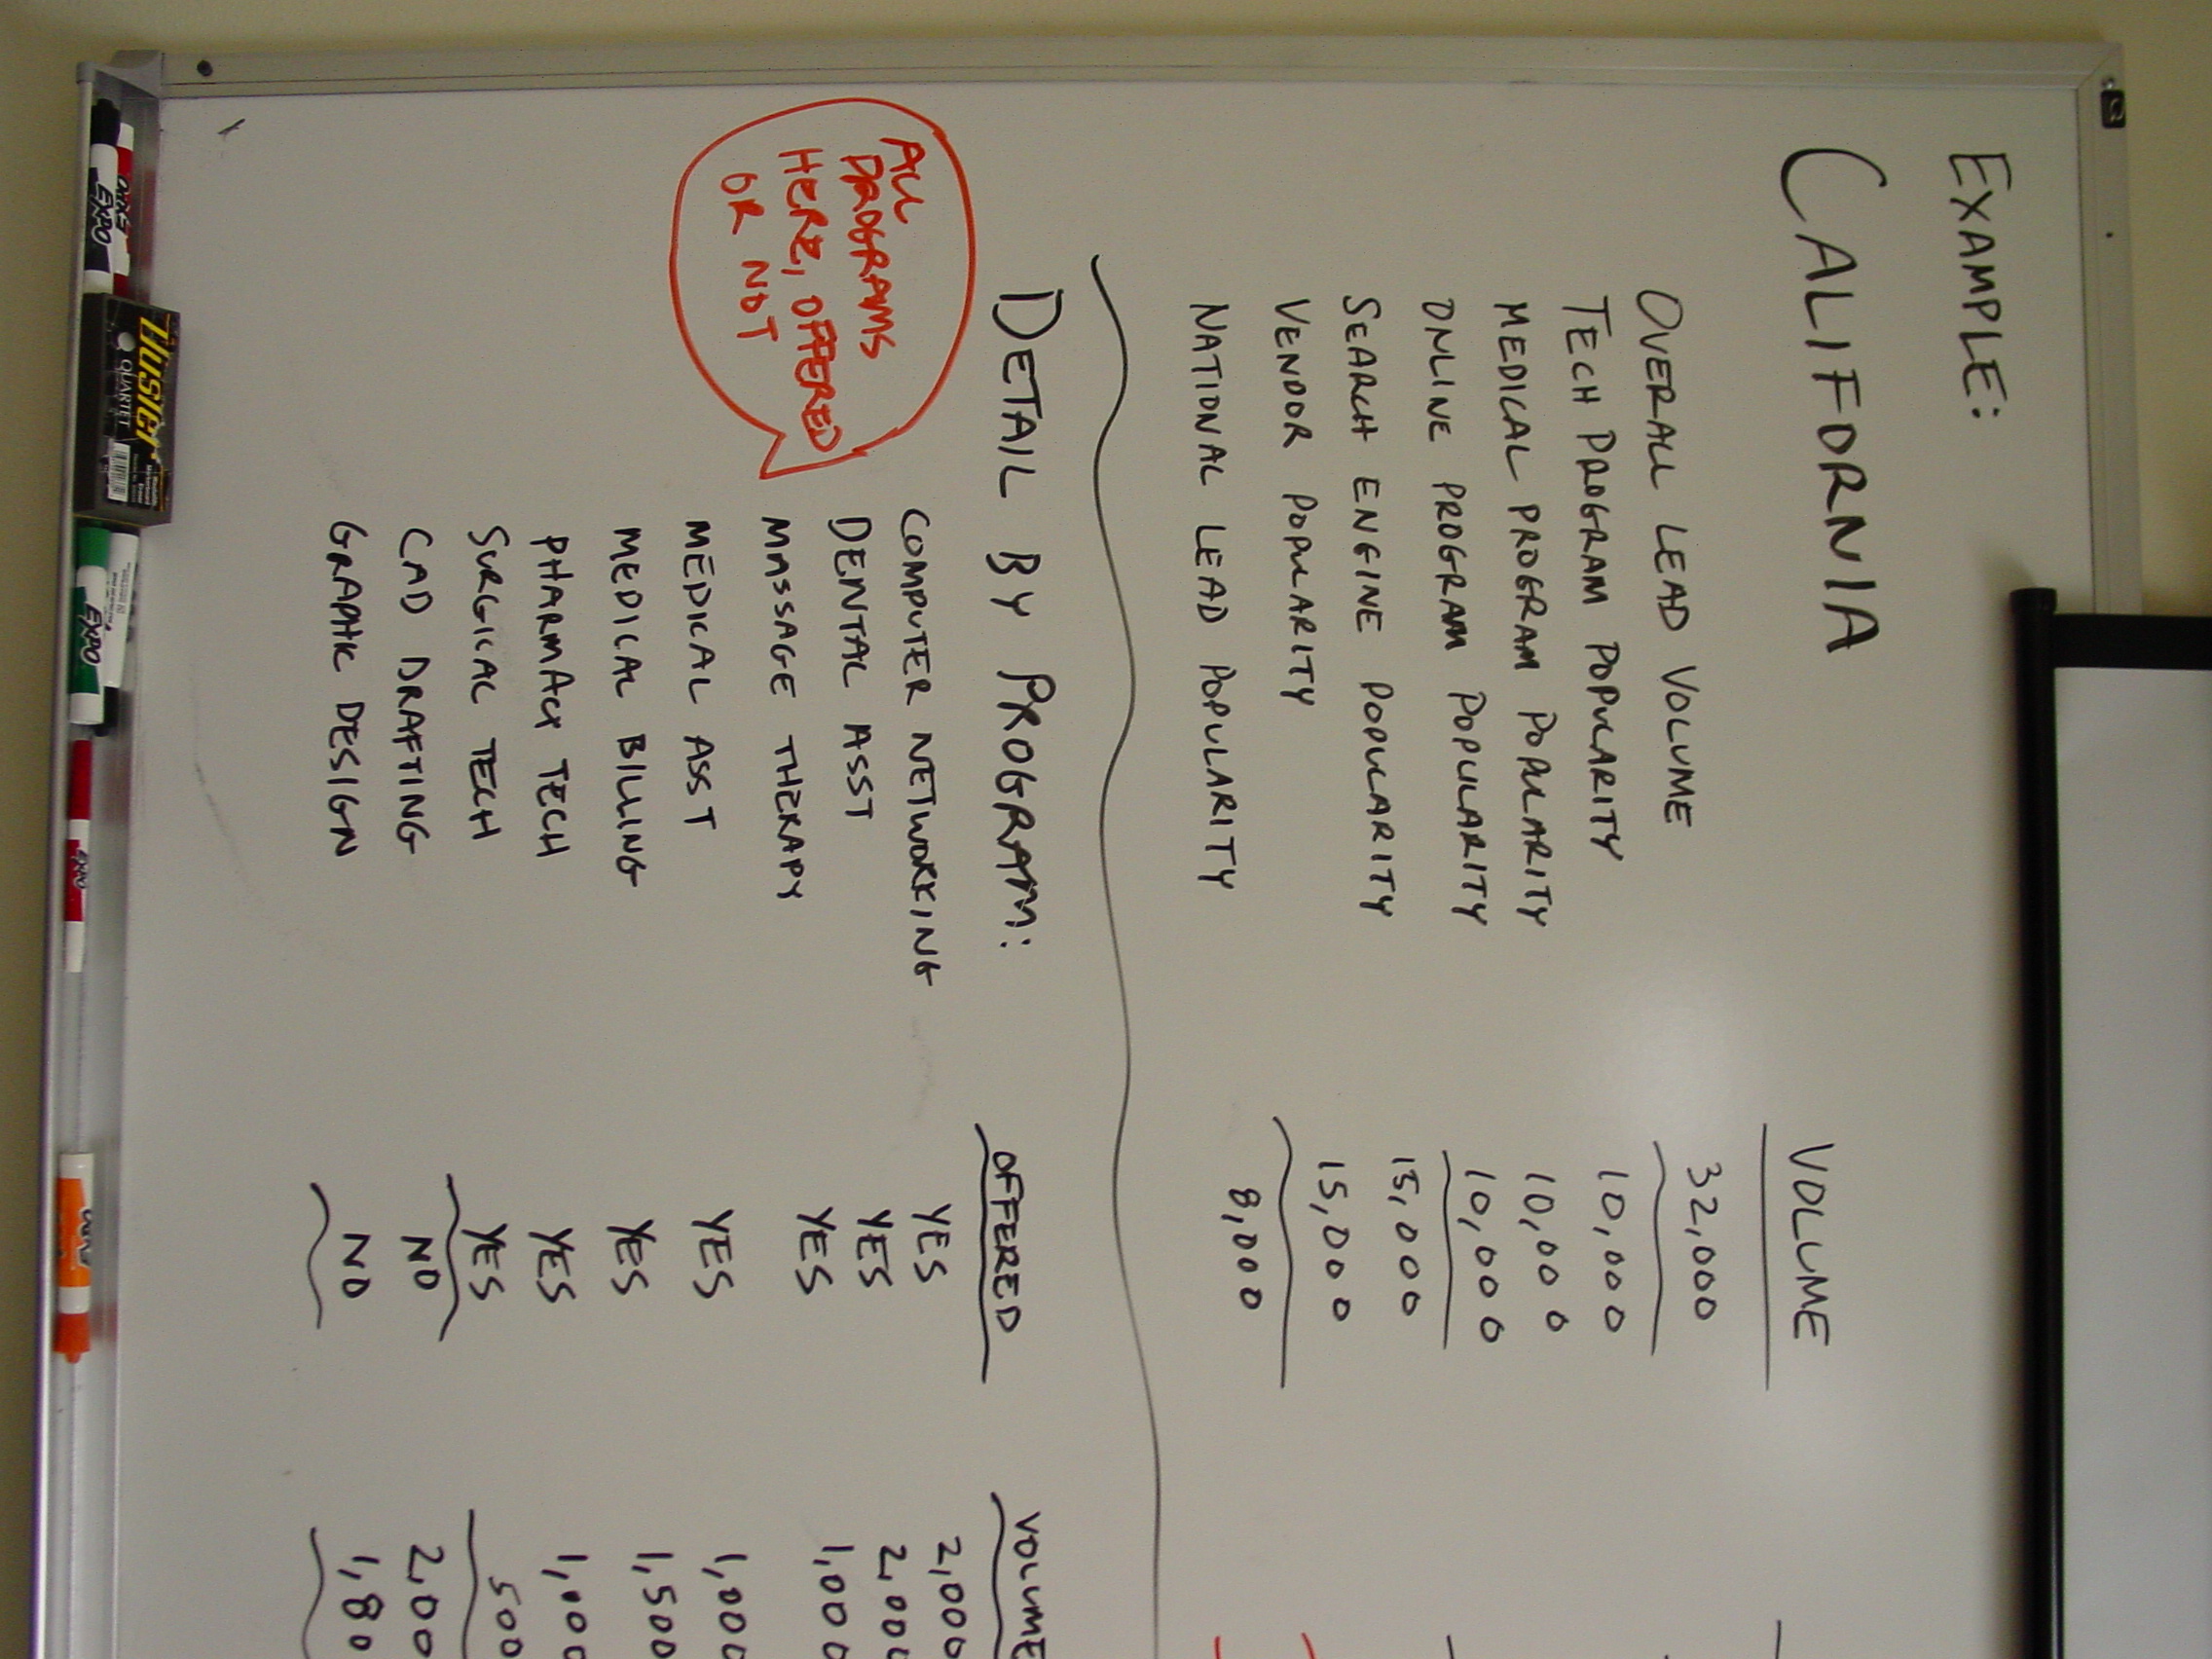 EXAMPLE:
CALIFORNIA VOLUME
OVERALL LEAD VOLUME 32,000
TECH PROGRAM POPULARITY 10,000
MEDICAL PROGRAM POPULARITY 10,000
ONLINE PROGRAM POPULARITY 10,000
SEARCH ENGINE POPULARITY 15,000
VENDOR POPULARITY 15,000
NATIONAL LEAD POPULARITY 8,000
DETAIL BY PROGRAM: OFFERED VOLUME
COMPUTER NETWORKING YES 2,000
DENTAL ASST YES 2,000
MASSAGE THERAPY YES 1,000
MEDICAL ASST YES 1,000
MEDICAL BILLING YES 1,500
PHARMACY TECH YES 1,000
SURGICAL TECH YES 500
CAD DRAFTING NO 2,00
GRAPHIC DESIGN NO 1,80
ALL
PROGRAMS
HERE, OFFERED
OR NOT
EXPO
QUARTET
EXPO
EXPO